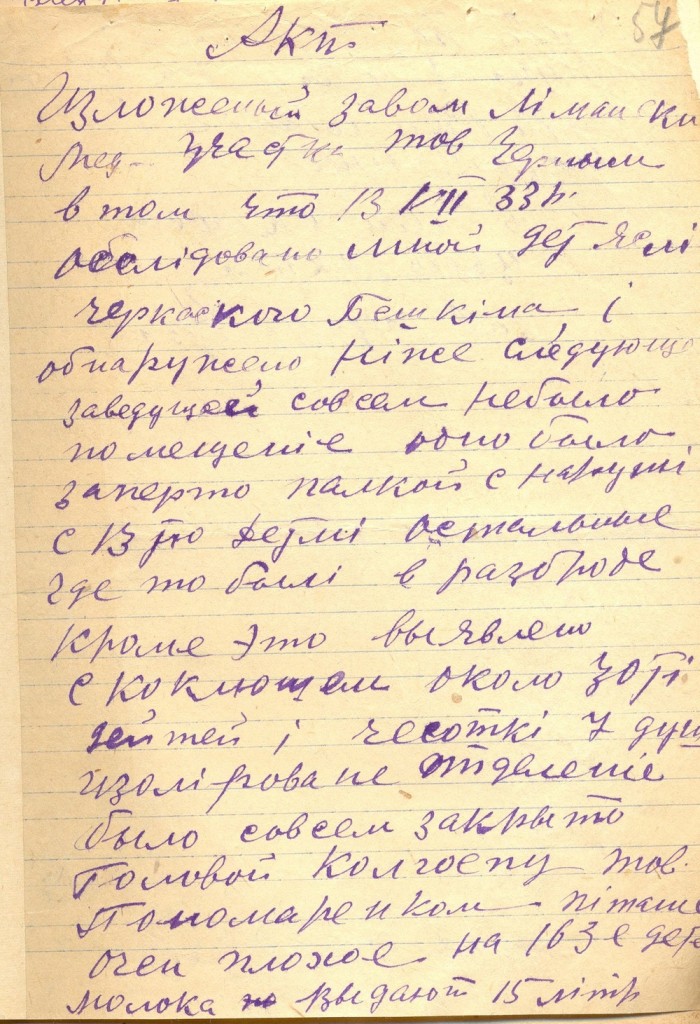 57
Актъ
Изложеный завом Лімански
Мед- участка тов Черным
в том что 13 VII 33 г.
обслідовано мной дет яслі
черкаского Бешкіма і
обнаружено ніже следующе
заведущей совсем небыло
помещеніе одно было
заперто палкой с наружі
с 13 тю детмі остальные
где то былі в разброде
кроме это выявлено
с коклюшем около 30ті
дейтей і чесоткі 7 душ
изоліроване отделеніе
было совсем закрыто
Головой Колгоспу тов.
Пономаренком - пітание
очен плохое на 163 е дет
молока выдают 15 літр